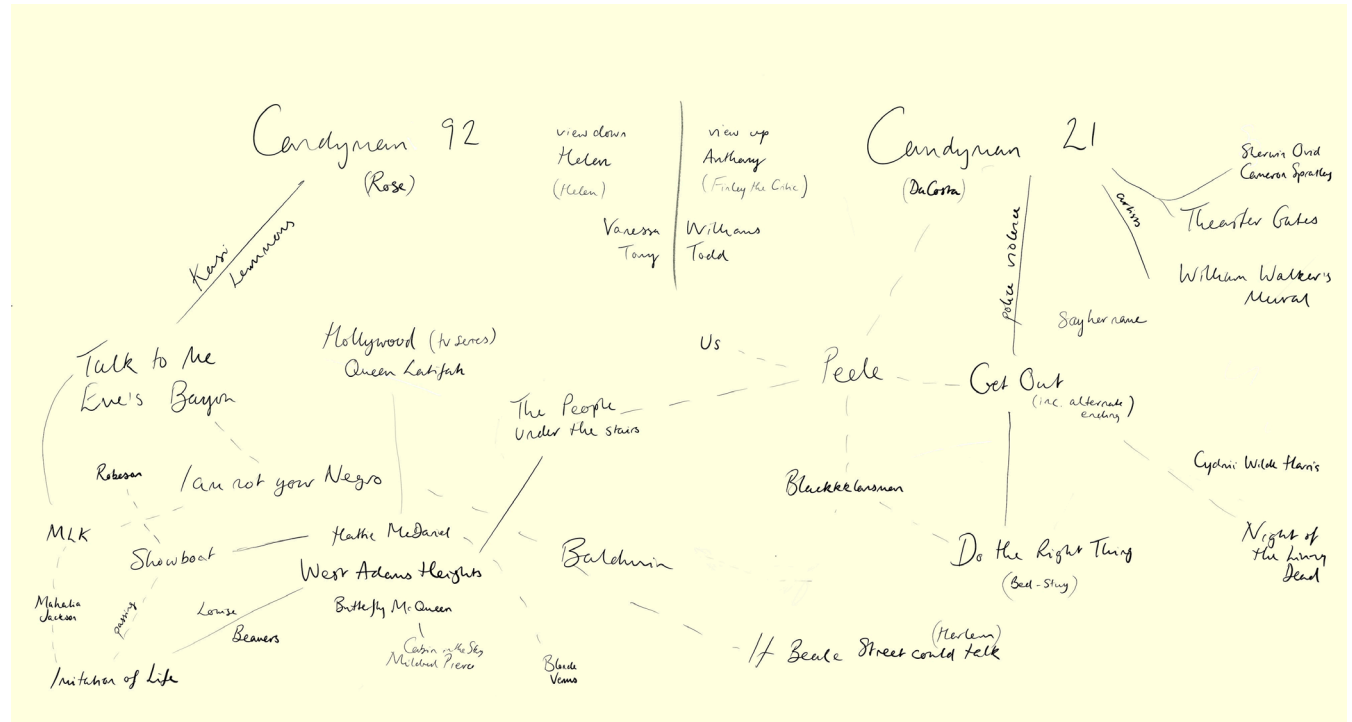 Candyman 92
(Rose)
view down
Helen
(Helen)
Vanessa
Tony
view up
Anthony
(Finley the Critic)
Williams
Todd
Candyman 21
(DaCosta)
Sherwin Ovid
Cameron Spratley
Theaster Gates
William Walker's
Mural
artists
police violence
Say her name
Kasi
Lemmons
Talk to Me
Eve's Bayou
Hollywood (tv series)
Queen Latifah
Us
Peele
Get Out
(inc. alternate
ending)
The People
Under the stairs
Robeson
I am not your Negro
Blackkklansman
Cydnii Wilde Harris
MLK
Showboat
Hattie McDaniel
West Adams Heights
Baldwin
Do the Right Thing
(Bed-Stuy)
Night of
the Living
Dead
Mahalia
Jackson
passing
Louise
Beavers
Butterfly McQueen
Cabin in the Sky
Mildred Pierce
Blonde
Venus
(Harlem)
If Beale Street could talk
Imitation of Life